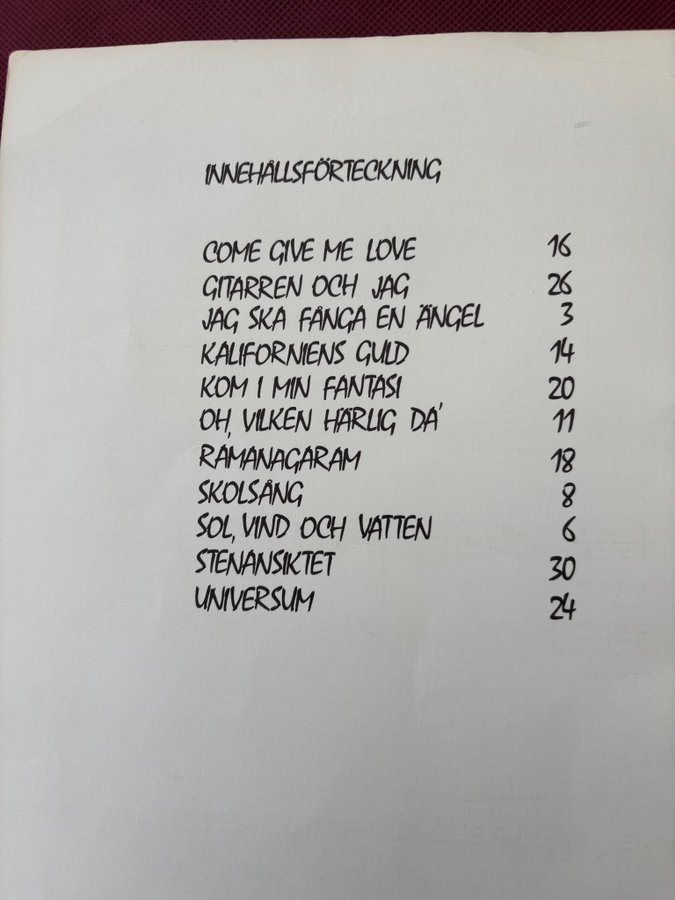 INNEHÅLLSFÖRTECKNING
COME GIVE ME LOVE 16
GITARREN OCH JAG 26
JAG SKA FÅNGA EN ÄNGEL 3
KALIFORNIENS GULD 14
KOM I MIN FANTASI 20
OH, VILKEN HÄRLIG DA' 11
RAMANAGARAM 18
SKOLSÅNG 8
SOL, VIND OCH VATTEN 6
STENANSIKTET 30
UNIVERSUM 24